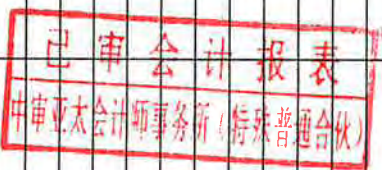 已审会计报表
中审亚太会计师事务所(特殊普通合伙)